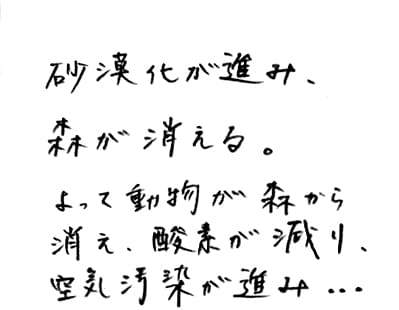 砂漠化が進み、
森が消える。
よって動物が森から
消え、酸素が減り、
空気汚染が進み…